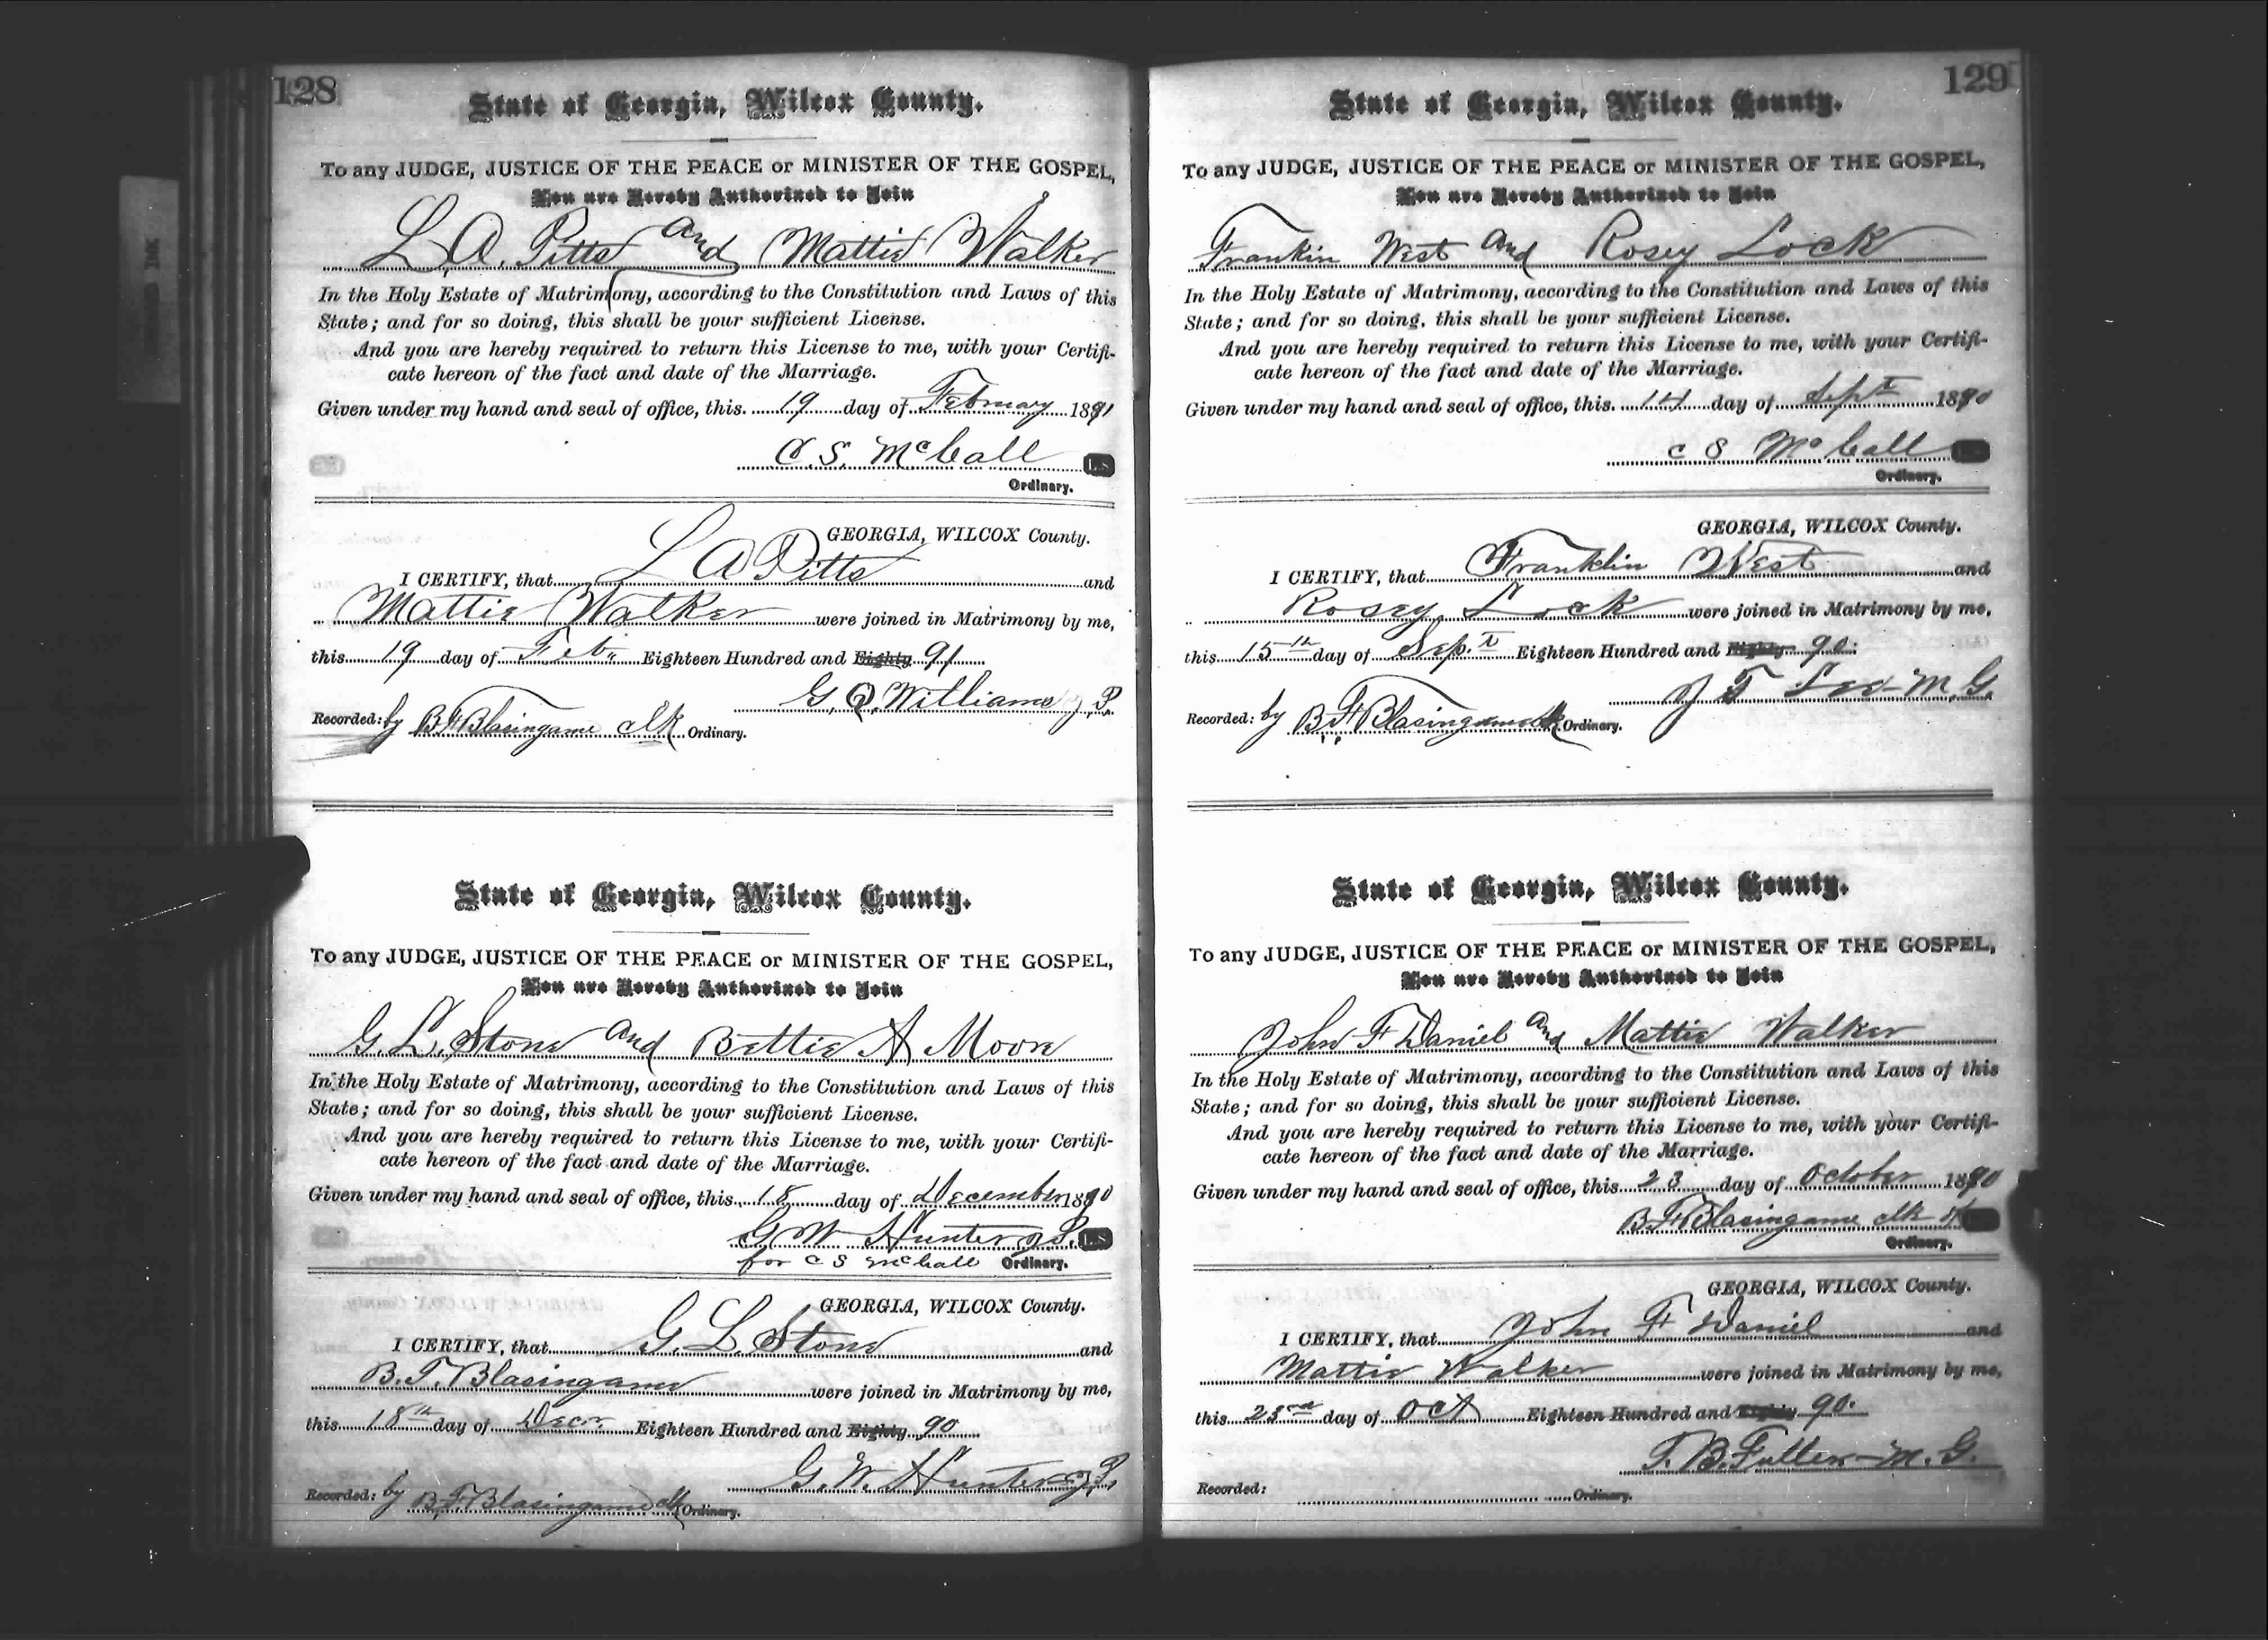 128
State of Georgia, Wilcox County.
To any JUDGE, JUSTICE OF THE PEACE or MINISTER OF THE GOSPEL,
You are Hereby Authorized to Join
L. A. Pitts and Mattie Walker
In the Holy Estate of Matrimony, according to the Constitution and Laws of this
State; and for so doing, this shall be your sufficient License.
And you are hereby required to return this License to me, with your Certifi-
cate hereon of the fact and date of the Marriage.
Given under my hand and seal of office, this 19 day of February 1891
C. S. McCall L.S
Ordinary.
GEORGIA, WILCOX County.
I CERTIFY, that L A Pitts and
Mattie Walker were joined in Matrimony by me,
this 19 day of Feb. Eighteen Hundred and Eighty 91
G. Q. Williams J. P.
Recorded: by B F Blasingame clk Ordinary.
State of Georgia, Wilcox County.
To any JUDGE, JUSTICE OF THE PEACE or MINISTER OF THE GOSPEL,
You are Hereby Authorized to Join
G. L. Stone and Bettie A Moore
In the Holy Estate of Matrimony, according to the Constitution and Laws of this
State; and for so doing, this shall be your sufficient License.
And you are hereby required to return this License to me, with your Certifi-
cate hereon of the fact and date of the Marriage.
Given under my hand and seal of office, this 18 day of December 1890
G W Hunter J.P. L.S
for C S McCall Ordinary.
GEORGIA, WILCOX County.
I CERTIFY, that G. L. Stone and
B. F. Blasingame were joined in Matrimony by me,
this 18th day of Decr. Eighteen Hundred and Eighty 90
G. W. Hunter J.P.
Recorded: by B. F. Blasingame clk Ordinary.
129
State of Georgia, Wilcox County.
To any JUDGE, JUSTICE OF THE PEACE or MINISTER OF THE GOSPEL,
You are Hereby Authorized to Join
Frankin West and Rosey Lock
In the Holy Estate of Matrimony, according to the Constitution and Laws of this
State; and for so doing, this shall be your sufficient License.
And you are hereby required to return this License to me, with your Certifi-
cate hereon of the fact and date of the Marriage.
Given under my hand and seal of office, this 14 day of Sept 1890
C S McCall
Ordinary.
GEORGIA, WILCOX County.
I CERTIFY, that Franklin West and
Rosey Lock were joined in Matrimony by me,
this 15th day of Sep.t Eighteen Hundred and Eighty 90.
J T Lee - M. G.
Recorded: by B F Blasingame clk Ordinary.
State of Georgia, Wilcox County.
To any JUDGE, JUSTICE OF THE PEACE or MINISTER OF THE GOSPEL,
You are Hereby Authorized to Join
John F Daniel and Mattie Walker
In the Holy Estate of Matrimony, according to the Constitution and Laws of this
State; and for so doing, this shall be your sufficient License.
And you are hereby required to return this License to me, with your Certifi-
cate hereon of the fact and date of the Marriage.
Given under my hand and seal of office, this 23 day of October 1890
B. F Blasingame clk
Ordinary.
GEORGIA, WILCOX County.
I CERTIFY, that John F Daniel and
Mattie Walker were joined in Matrimony by me,
this 23rd day of Oct Eighteen Hundred and Eighty 90.
T. B. Fuller - M. G.
Recorded: Ordinary.